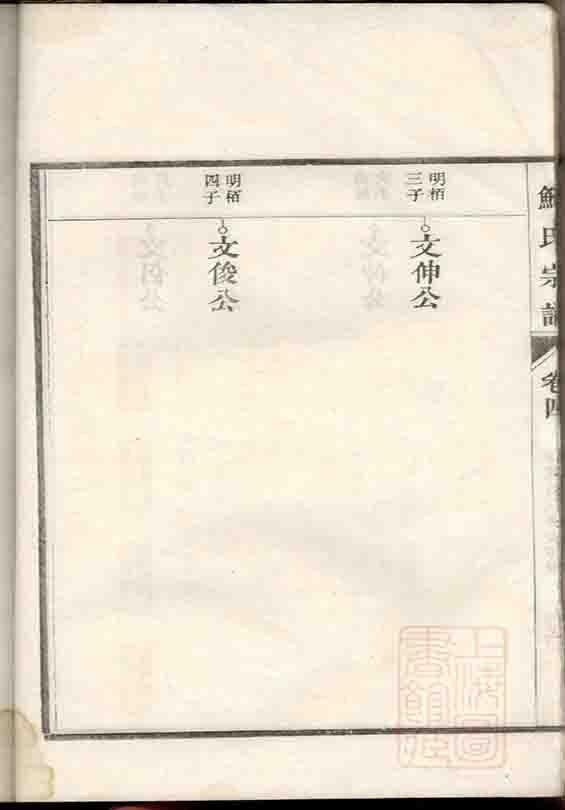 氏宗譜
卷四
明栢
三子
文伸公
明栢
四子
文俊公
上海圖書館藏